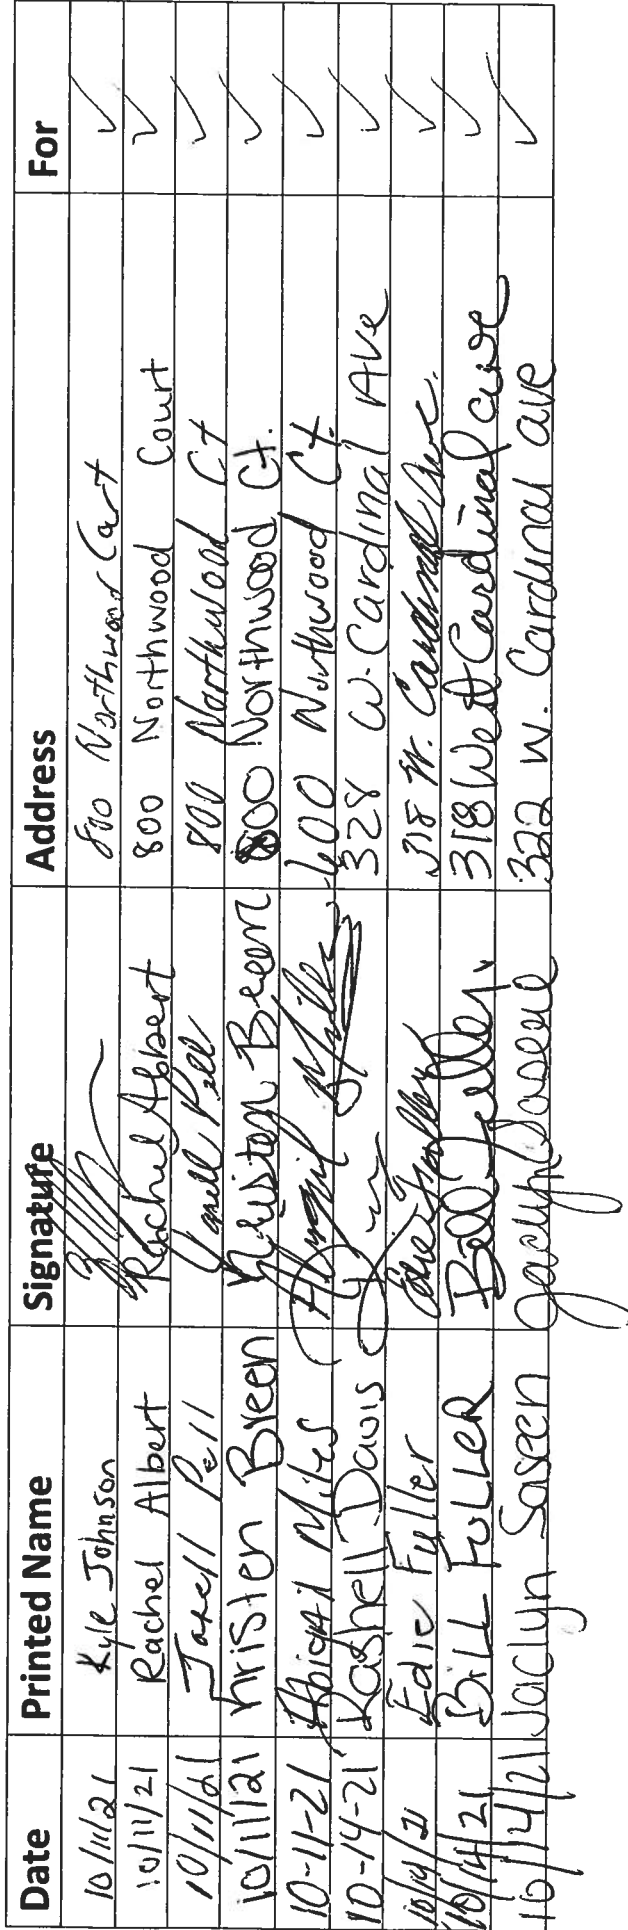 Date Printed Name Signature Address For
10/11/21 Kyle Johnson 800 Northwood Cort ✓
10/11/21 Rachel Albert Rachel Albert 800 Northwood Court ✓
10/11/21 Janell Pell Janell Pell 800 Northwood Ct ✓
10/11/21 Kristen Breen Kristen Breen 800 Northwood Ct. ✓
10-11-21 Abigail Miles Abigail Miles 600 Northwood Ct. ✓
10-14-21 Rashell Davis 328 W. Cardinal Ave ✓
10/14/21 Edie Fuller Edie Fuller 318 W. Cardinal Ave. ✓
10/14/21 Bill FULLER Bill Fuller 318 West Cardinal ave ✓
10/14/21 Jaclyn Saseen Jaclyn Saseen 322 W. Cardinal ave ✓